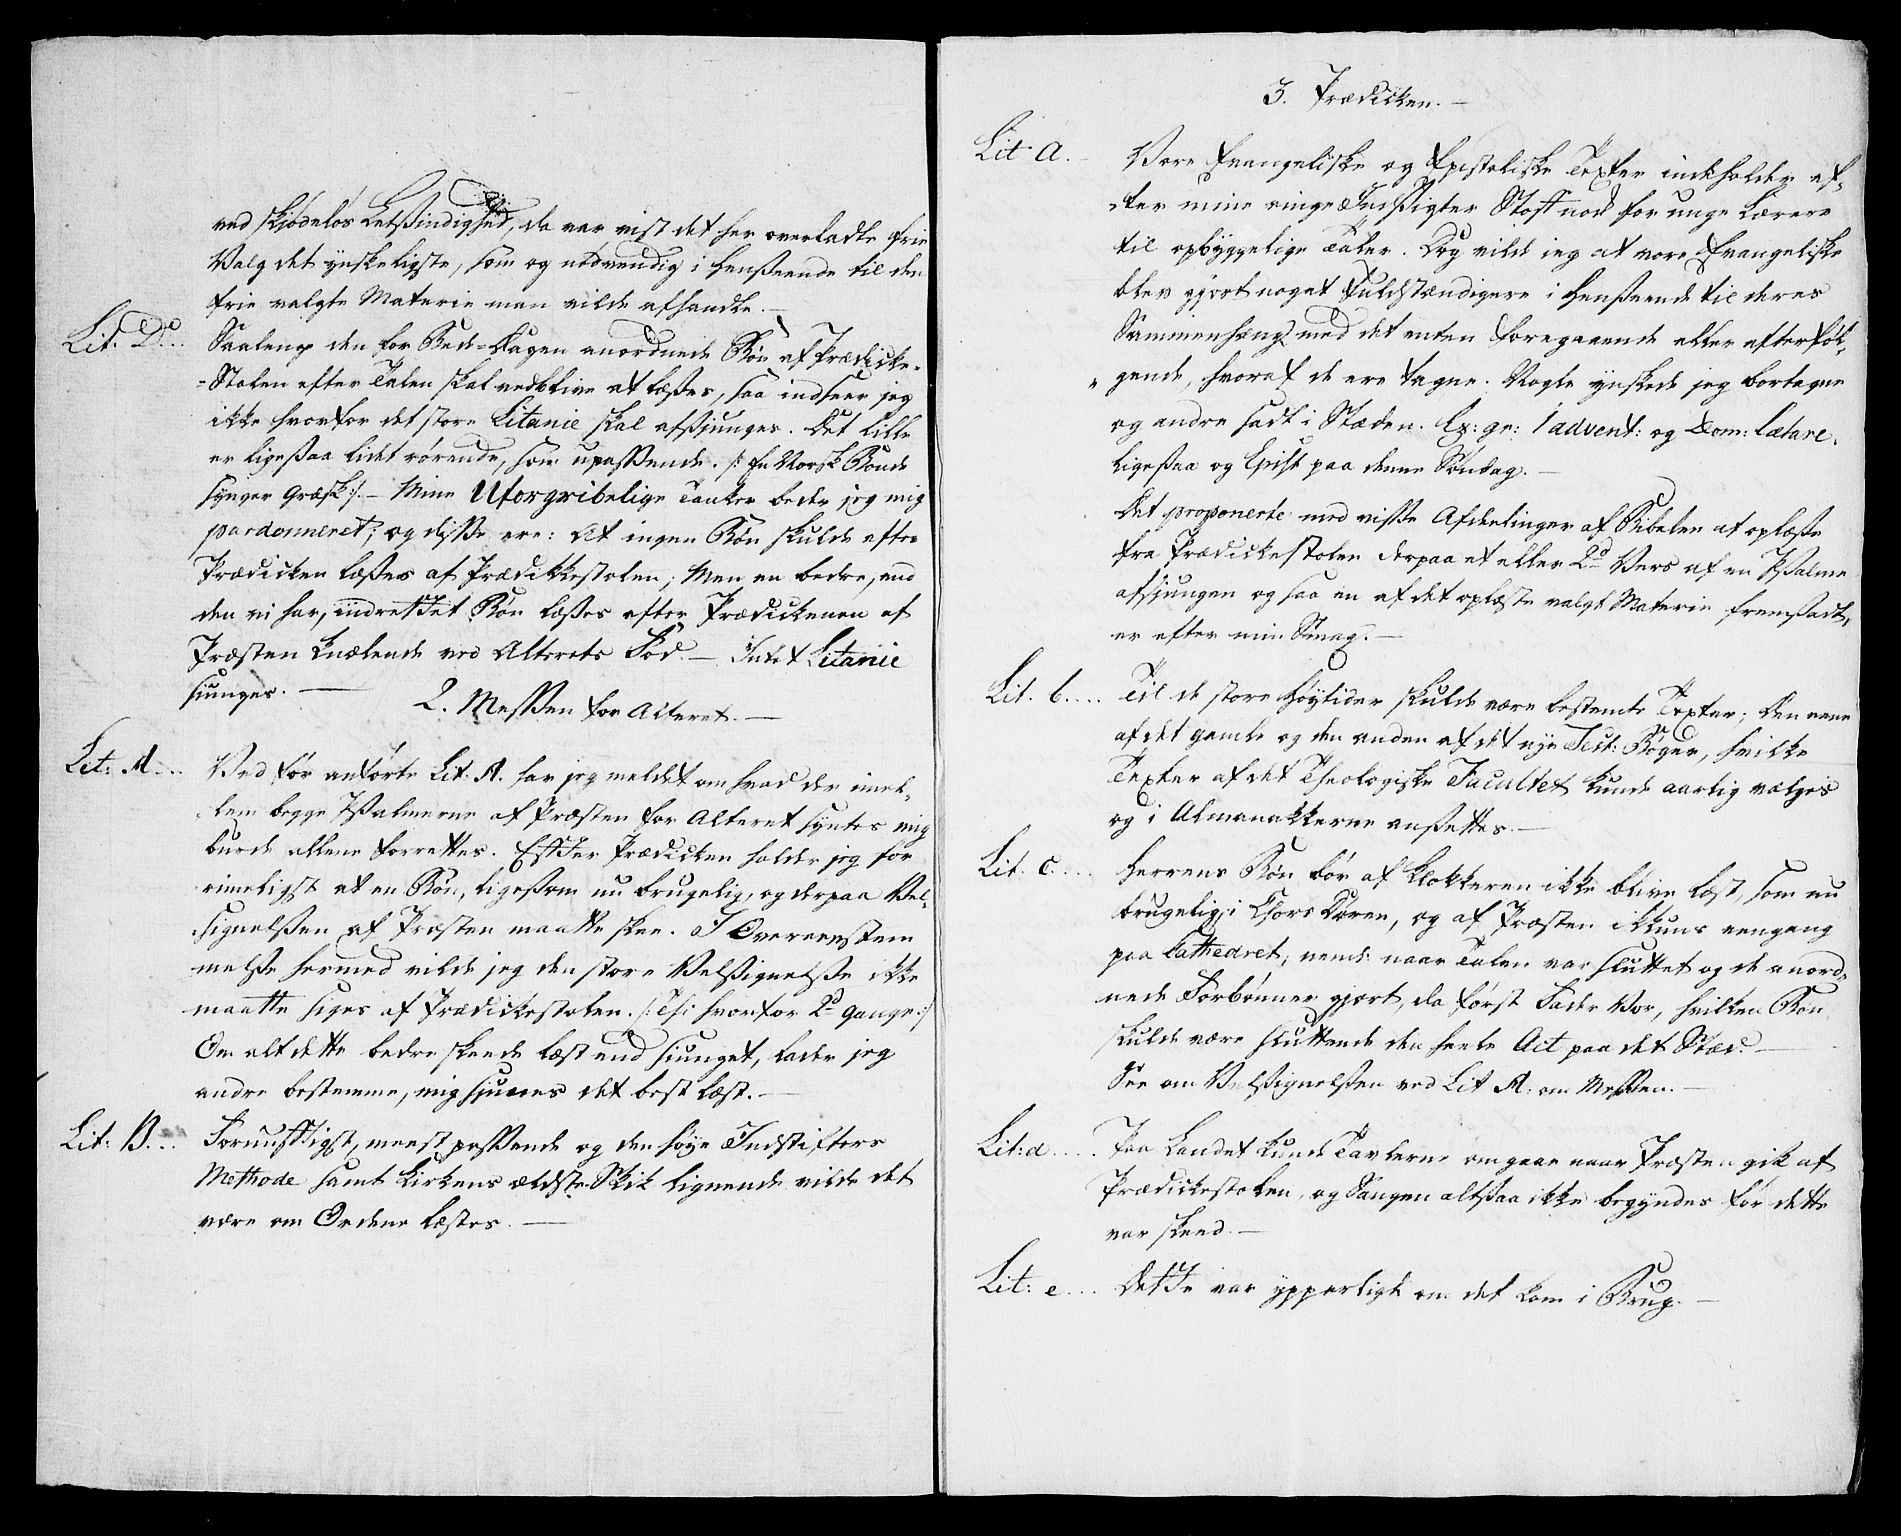 ved skiødeløs Letsindighed, da var vist det her overladte frie
Valg det ynskeligste, som og nødvendig i Henseende til den
frie valgte Materie man vilde afhandle. —
Lit. D... Saalenge den for Bede-Dagen anordnede Bøn af Prædicke-
-Stolen efter Talen skal vedblive at læses, saa indseer jeg
ikke hvorfor det store Litanie skal afsjunges. Det lille
er ligesaa lidt rørende, som upassende. /: En Norsk Bonde
synger Græsk :/. — Mine Uforgribelige Tanker beder jeg mig
pardonneret; og disse ere: At ingen Bøn skulde efter
Prædicken læses af Prædikkestolen; Men en bedre, end
den vi har, indrettet Bøn læses efter Prædickenen af
Præsten knælende ved Alterets Fod. — Intet Litanie
siunges. —
2. Messen for Alteret. —
Lit: A... Ved før anførte Lit. A. har jeg meldet om hvad der imel-
lem begge Psalmerne af Præsten for Alteret syntes mig
burde allene forrettes. Efter Prædicken holder jeg for
rimeligst at en Bøn, ligesom nu brugelig, og derpaa Vel-
signelsen af Præsten maatte skee. I Overeenstem
melse hermed vilde jeg den store Velsignelse ikke
maatte siges af Prædickestolen. /: Thi hvorfor 2de gange :/
Om alt dette bedre skeede læst end siunget, lader jeg
andre bestemme, mig synes det best læst. —
Lit: B... Fornuftigst, meest passende og den høye Indstifters
Methode samt Kirkens ældste Skik lignende vilde det
være om Ordene læstes. —
3. Prædicken. —
Lit a. Vore Evangeliske og Epistoliske Texter indeholder ef-
-ter mine ringe Indsigter Stoff nok for unge Lærere
til opbyggelige Taler. Dog vilde jeg at vore Evangeliske
blev gjort noget Fuldstændigere i Henseende til deres
Sammenhæng med det enten foregaaende eller efterføl-
gende, hvoraf de ere tagne. Nogle ynskede jeg bortagne
og andre sadt i Stæden. Ex: gr: 1 advent: og Dom: Lætare.
ligesaa og Epist paa denne Søndag. —
Det proponerte med visse Afdelinger af Bibelen at oplæse
fra Prædickestolen derpaa et eller 2de Vers af en Psalme
afsjungen og saa en af det oplæste valgt Materie fremsadt,
er efter min Smag. —
Lit. b.... Til de store Høytider skulde være bestemte Texter; Den eene
af det gamle og den anden af det nye Test: Bøger, hvilke
Texter af det Theologiske Facultet kunde aarlig vælges
og i Almanakkerne ansettes. —
Lit. c.... Herrens Bøn bør af Klokkeren ikke blive læst, som nu
brugelig, i Chors Døren, og af Præsten ikkuns eengang
paa Cathedret, neml: naar Talen var sluttet og de anord-
nede Forbønner gjort, da først Fader Vor, hvilken Bøn
skulde være sluttende den heele Act paa det Stæd. —
See om Velsignelsen ved Lit A. om Messen. —
Lit: d.... Paa Landet kunde Tavlerne omgaae naar Præsten gik af
Prædickestolen, og Sangen altsaa ikke begyndes før dette
var skeed. —
Lit: e... Dette var ypperligt om det kom i Brug. —